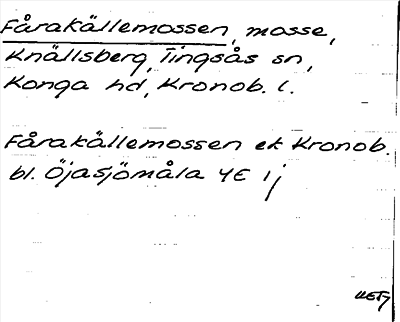 Fårakällemossen, mosse,
Knällsberg, Tingsås sn,
Konga hd, Kronob. l.
Fårakällemossen ek Kronob.
bl. Öjasjömåla 4E 1j